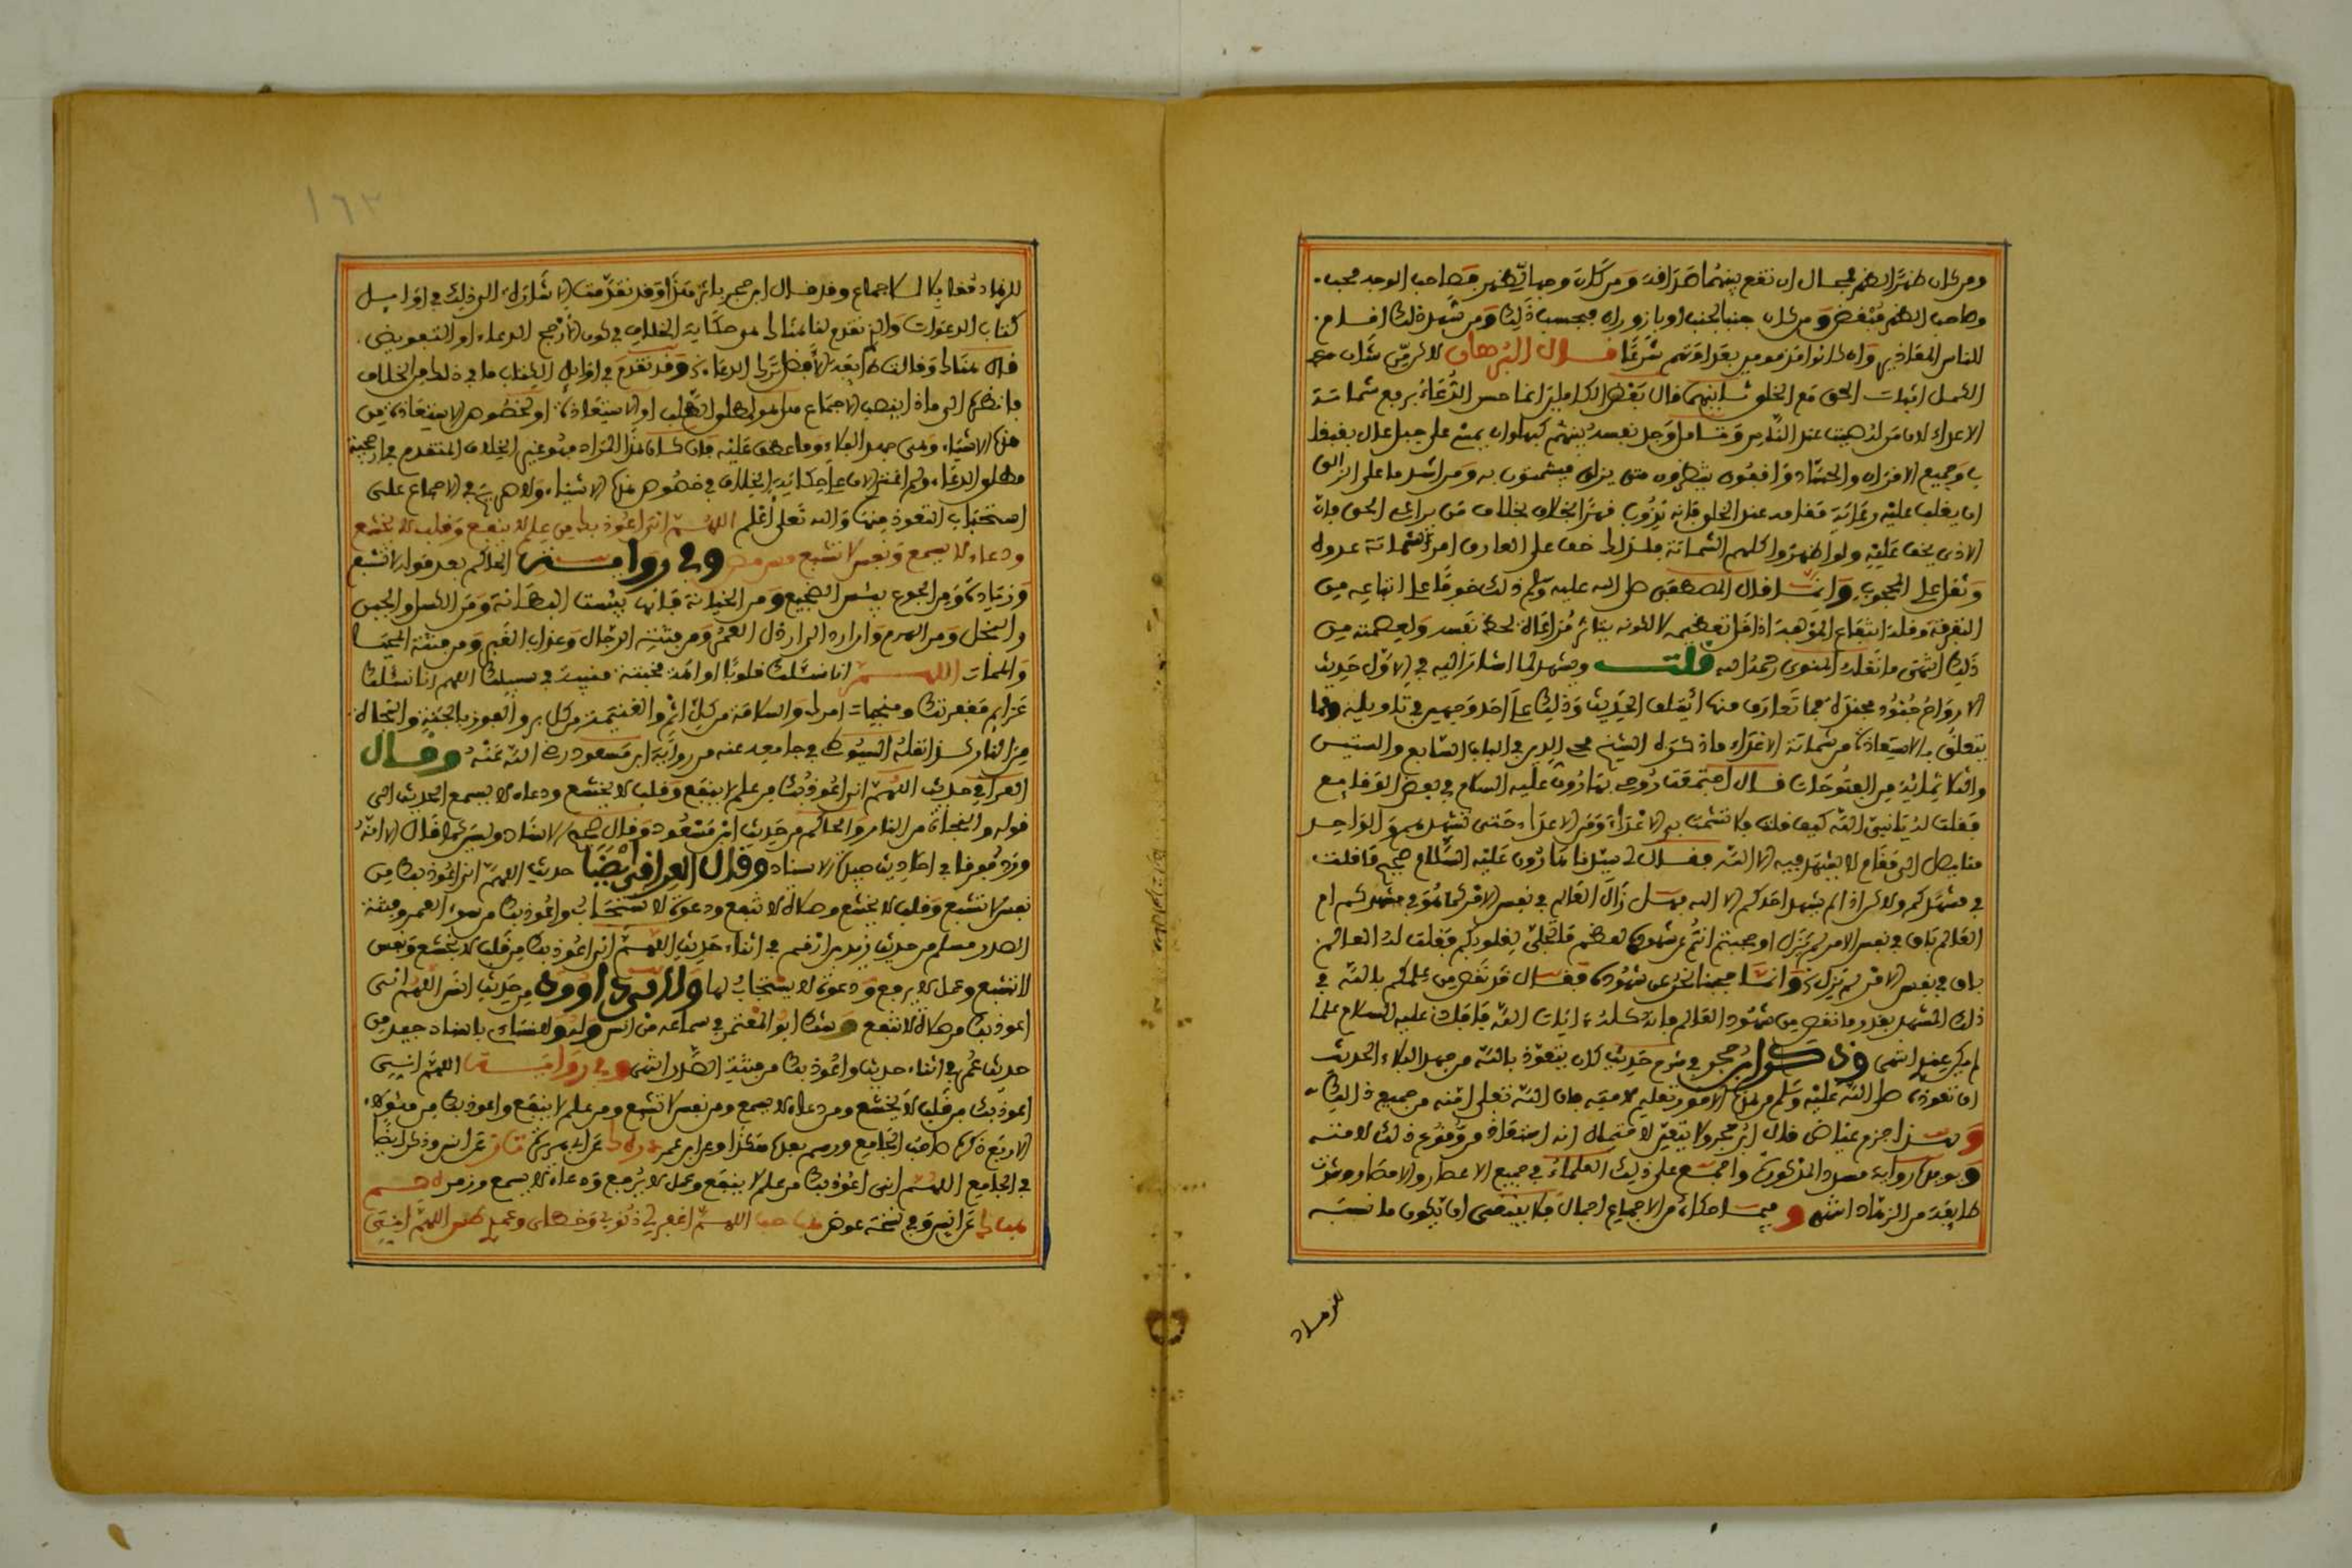 ومن كان ظهرا لظهر فمحال ان تقع بينهما صداقة ومن كان وجها لظهر فصاحب الوجه محب
وصاحب الظهر مبغض ومن كان جنبا لجنب او بازورار فبحسب ذلك ومن شهد ذلك اقام
للناس المعاذير وان كانوا مذمومين بعداوتهم شرعا قال
الكمل اثبات الحق مع الخلق قال بعض الكاملين انما حسن الدعاء برفع شماتة
الاعداء لان من له هيبة عند الناس وتامل وجد نفسه بينهم كمن يمشي على حبل عال بقبقاب
وجميع الاقران والحساد واقفون ينتظرون متى يزلق فيشمتون به ومن اشد ما على الزالق
ان يغلب عليه رعاية مقامه عند الخلق فانه يذوب فهذا بخلاف من يراعي الحق فان
الاذى يخف عليه ولو اظهروا كلهم الشماتة فلذلك خف على العارف امر شماتة عدوه
وثقل على المحجوب وانما قال المصطفى صلى الله عليه وسلم ذلك خوفا على اتباعه من
التفرقة وقلة انتفاع المؤلفة اذا قل تعظيمه لا لكونه يتأثر مراعاة لحظ نفسه ولعصمته من
ذلك انتهى ما نقله المنوي رحمه الله قلت ويشهد لما اشار اليه في الاول حديث
الارواح جنود مجندة فما تعارف منها ائتلف الحديث وذلك على احد وجهين في تاويله ومما
يتعلق بالاستعاذة من شماتة الاعداء ما ذكره الشيخ محي الدين في الباب السابع والستين
وثلاثمائة من الفتوحات قال اجتمعت روحي بهارون عليه السلام في بعض الوقايع
فقلت له يا نبي الله كيف قلت فلا تشمت بي الاعداء ومن الاعداء حتى تشهدهم والواحد
منا يصل الى مقام لا يشهد فيه الا الله فقال لي سيدنا هارون عليه السلام صحيح ما قلت
في مشهدكم ولكن اذا لم يشهد احدكم الا الله فهل زال العالم في نفس الامر كما هو في مشهدكم ام
العالم باق في نفس الامر لم يزل وحجبتم انتم عن شهوده لعظيم ما تجلى لقلوبكم فقلت له العالم
باق في نفس الامر لم يزل وانما حجبنا نحن عن شهوده فقال قد نقص من علمكم بالله في
ذلك المشهد بقدر ما نقص من شهود العالم فانه كله ايات الله فافادني عليه السلام علما
لم يكن عندي انتهى وذكر ابن حجر في شرح حديث كان يتعوذ بالله من جهد البلاء الحديث
ان تعوذه صلى الله عليه وسلم من هذه الامور تعليم لامته فان الله تعالى امنه من جميع ذلك
وبهذا جزم عياض قال ابن حجر ولا يتعين لاحتمال انه استعاذ من وقوع ذلك لامته
ويؤيده رواية مسدد المذكورة واجمع على ذلك العلماء في جميع الاعصار والامصار وشذت
طايفة من الزهاد انتهى و حكاه من الاجماع اجمال فلا يقتضي ان يكون ما نسبه
للزهاد
للزهاد وقد قال ابن حجر باثر هذا وقد تقدمت الاشارة الى ذلك في اوايل
كتاب الدعوات والذي تقدم لنا هناك هو حكاية الخلاف في كون الارجح الدعاء او التفويض
قال هناك وقالت طايفة الافضل ترك الدعاء وقد تقدم في اوايل الكتاب ما في ذلك من الخلاف
فانظر الى ماذا ينصب الاجماع لمطلق الطلب او الاستعاذة او لخصوص الاستعاذة من
هذه الاشياء وهي جهد البلاء وما عطف عليه فان كان هذا المراد فهو عين الخلاف المتقدم في ارجحية
مطلق الدعاء ولم اقف الان على حكاية الخلاف في خصوص هذه الاشياء في الاجماع على
استحباب التعوذ منها والله تعالى اعلم اللهم اني اعوذ بك من علم لا ينفع وقلب لا يخشع
ودعاء لا يسمع ونفس لا تشبع وفي رواية الحاكم بعد قوله لا تشبع
وزيادة ومن الجوع بيس الضجيع ومن الخيانة فانها بيست البطانة ومن الكسل والجبن
والبخل ومن الهرم وان ارد الى ارذل العمر ومن فتنة الدجال وعذاب القبر ومن فتنة المحيا
والممات اللهم انا نسئلك قلوبا اواهة مخبتة منيبة في سبيلك اللهم انا نسئلك
عزايم مغفرتك ومنجيات امرك والسلامة من كل اثم والغنيمة من كل بر والفوز بالجنة والنجاة
من النار نقله السيوطي في جامعه عنه من رواية ابن مسعود رضي الله عنه وقال
العراقي حديث اللهم اني اعوذ بك من علم لا ينفع وقلب لا يخشع ودعاء لا يسمع الحديث الى
قوله والنجاة من النار والحاكم من حديث ابن مسعود وقال صحيح الاسناد وليس كما قال الا انه
ورد مفرقا في احاديث جيدة الاسناد وقال العراقي ايضا حديث اللهم اني اعوذ بك من
نفس لا تشبع وقلب لا يخشع وصلاة لا تنفع ودعوة لا تستجاب واعوذ بك من سوء العمر وفتنة
الصدر مسلم من حديث زيد بن ارقم في اثناء حديث اللهم اني اعوذ بك من قلب لا يخشع ونفس
لا تشبع وعمل لا يرفع ودعوة لا يستجاب لها ولابي داوود من حديث انس اللهم اني
اعوذ بك من صلاة لا تنفع وشك ابو المعتمر في سماعه من انس وللنساءي باسناد جيد من
حديث عمر في اثناء حديث واعوذ بك من فتنة الصدر انتهى وفي رواية اللهم اني
اعوذ بك من قلب لا يخشع ومن دعاء لا يسمع ومن نفس لا تشبع ومن علم لا ينفع واعوذ بك من هؤلاء
الاربع ذكره صاحب الجامع ورسم بعده هكذا وعن ابن عمر عن ابي هريرة عن انس وذكر ايضا
في الجامع اللهم اني اعوذ بك من علم لا ينفع وعمل لا يرفع ودعاء لا يسمع ورمز له
عن انس وفي نسخة عوض اللهم اغفر لي ذنوبي وخطاي وعمدي اللهم اني